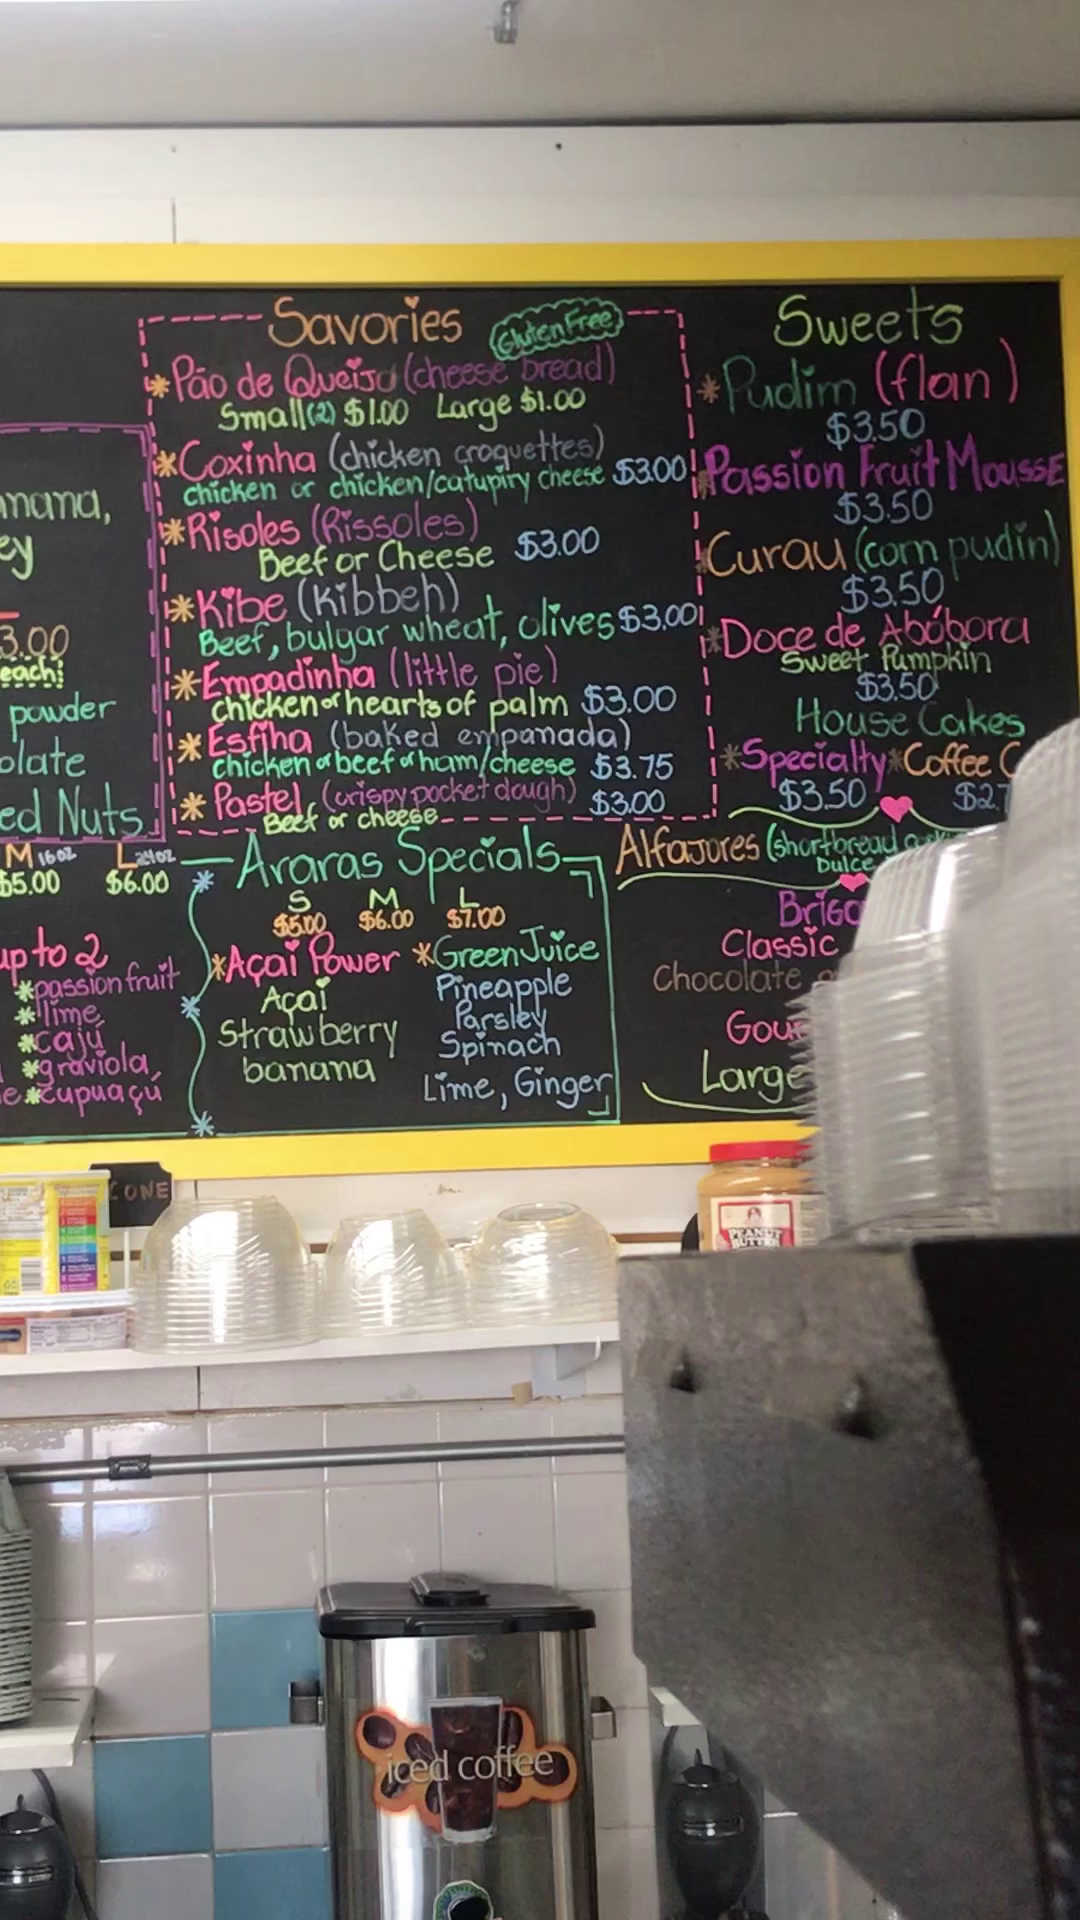 Savories
Gluten Free
*Pão de Queijo (cheese bread)
Small(2) $1.00 Large $1.00
*Coxinha (chicken croquettes)
chicken or chicken/catupiry cheese $3.00
*Risoles (Rissoles)
Beef or Cheese $3.00
*Kibe (kibbeh)
Beef, bulgar wheat, olives $3.00
*Empadinha (little pie)
chicken or hearts of palm $3.00
*Esfiha (baked empanada)
chicken or beef or ham/cheese $3.75
*Pastel (crispy pocket dough) $3.00
Beef or cheese
Sweets
*Pudim (flan)
$3.50
*Passion Fruit Mousse
$3.50
*Curau (corn pudin)
$3.50
*Doce de Abóbora
Sweet Pumpkin
$3.50
House Cakes
*Specialty *Coffee
$3.50 $2.7
Alfajores (shortbread
Dulce
Classic
Chocolate
Large
3.00
each:
powder
Nuts
M 16oz L 24oz
$5.00 $6.00
up to 2
*passion fruit
*lime
*cajú
*graviola,
*cupuaçú
Araras Specials
S M L
$5.00 $6.00 $7.00
*Açai Power
Açai
Strawberry
banana
*Green Juice
Pineapple
Parsley
Spinach
Lime, Ginger
CONE
PEANUT
BUTTER
iced coffee